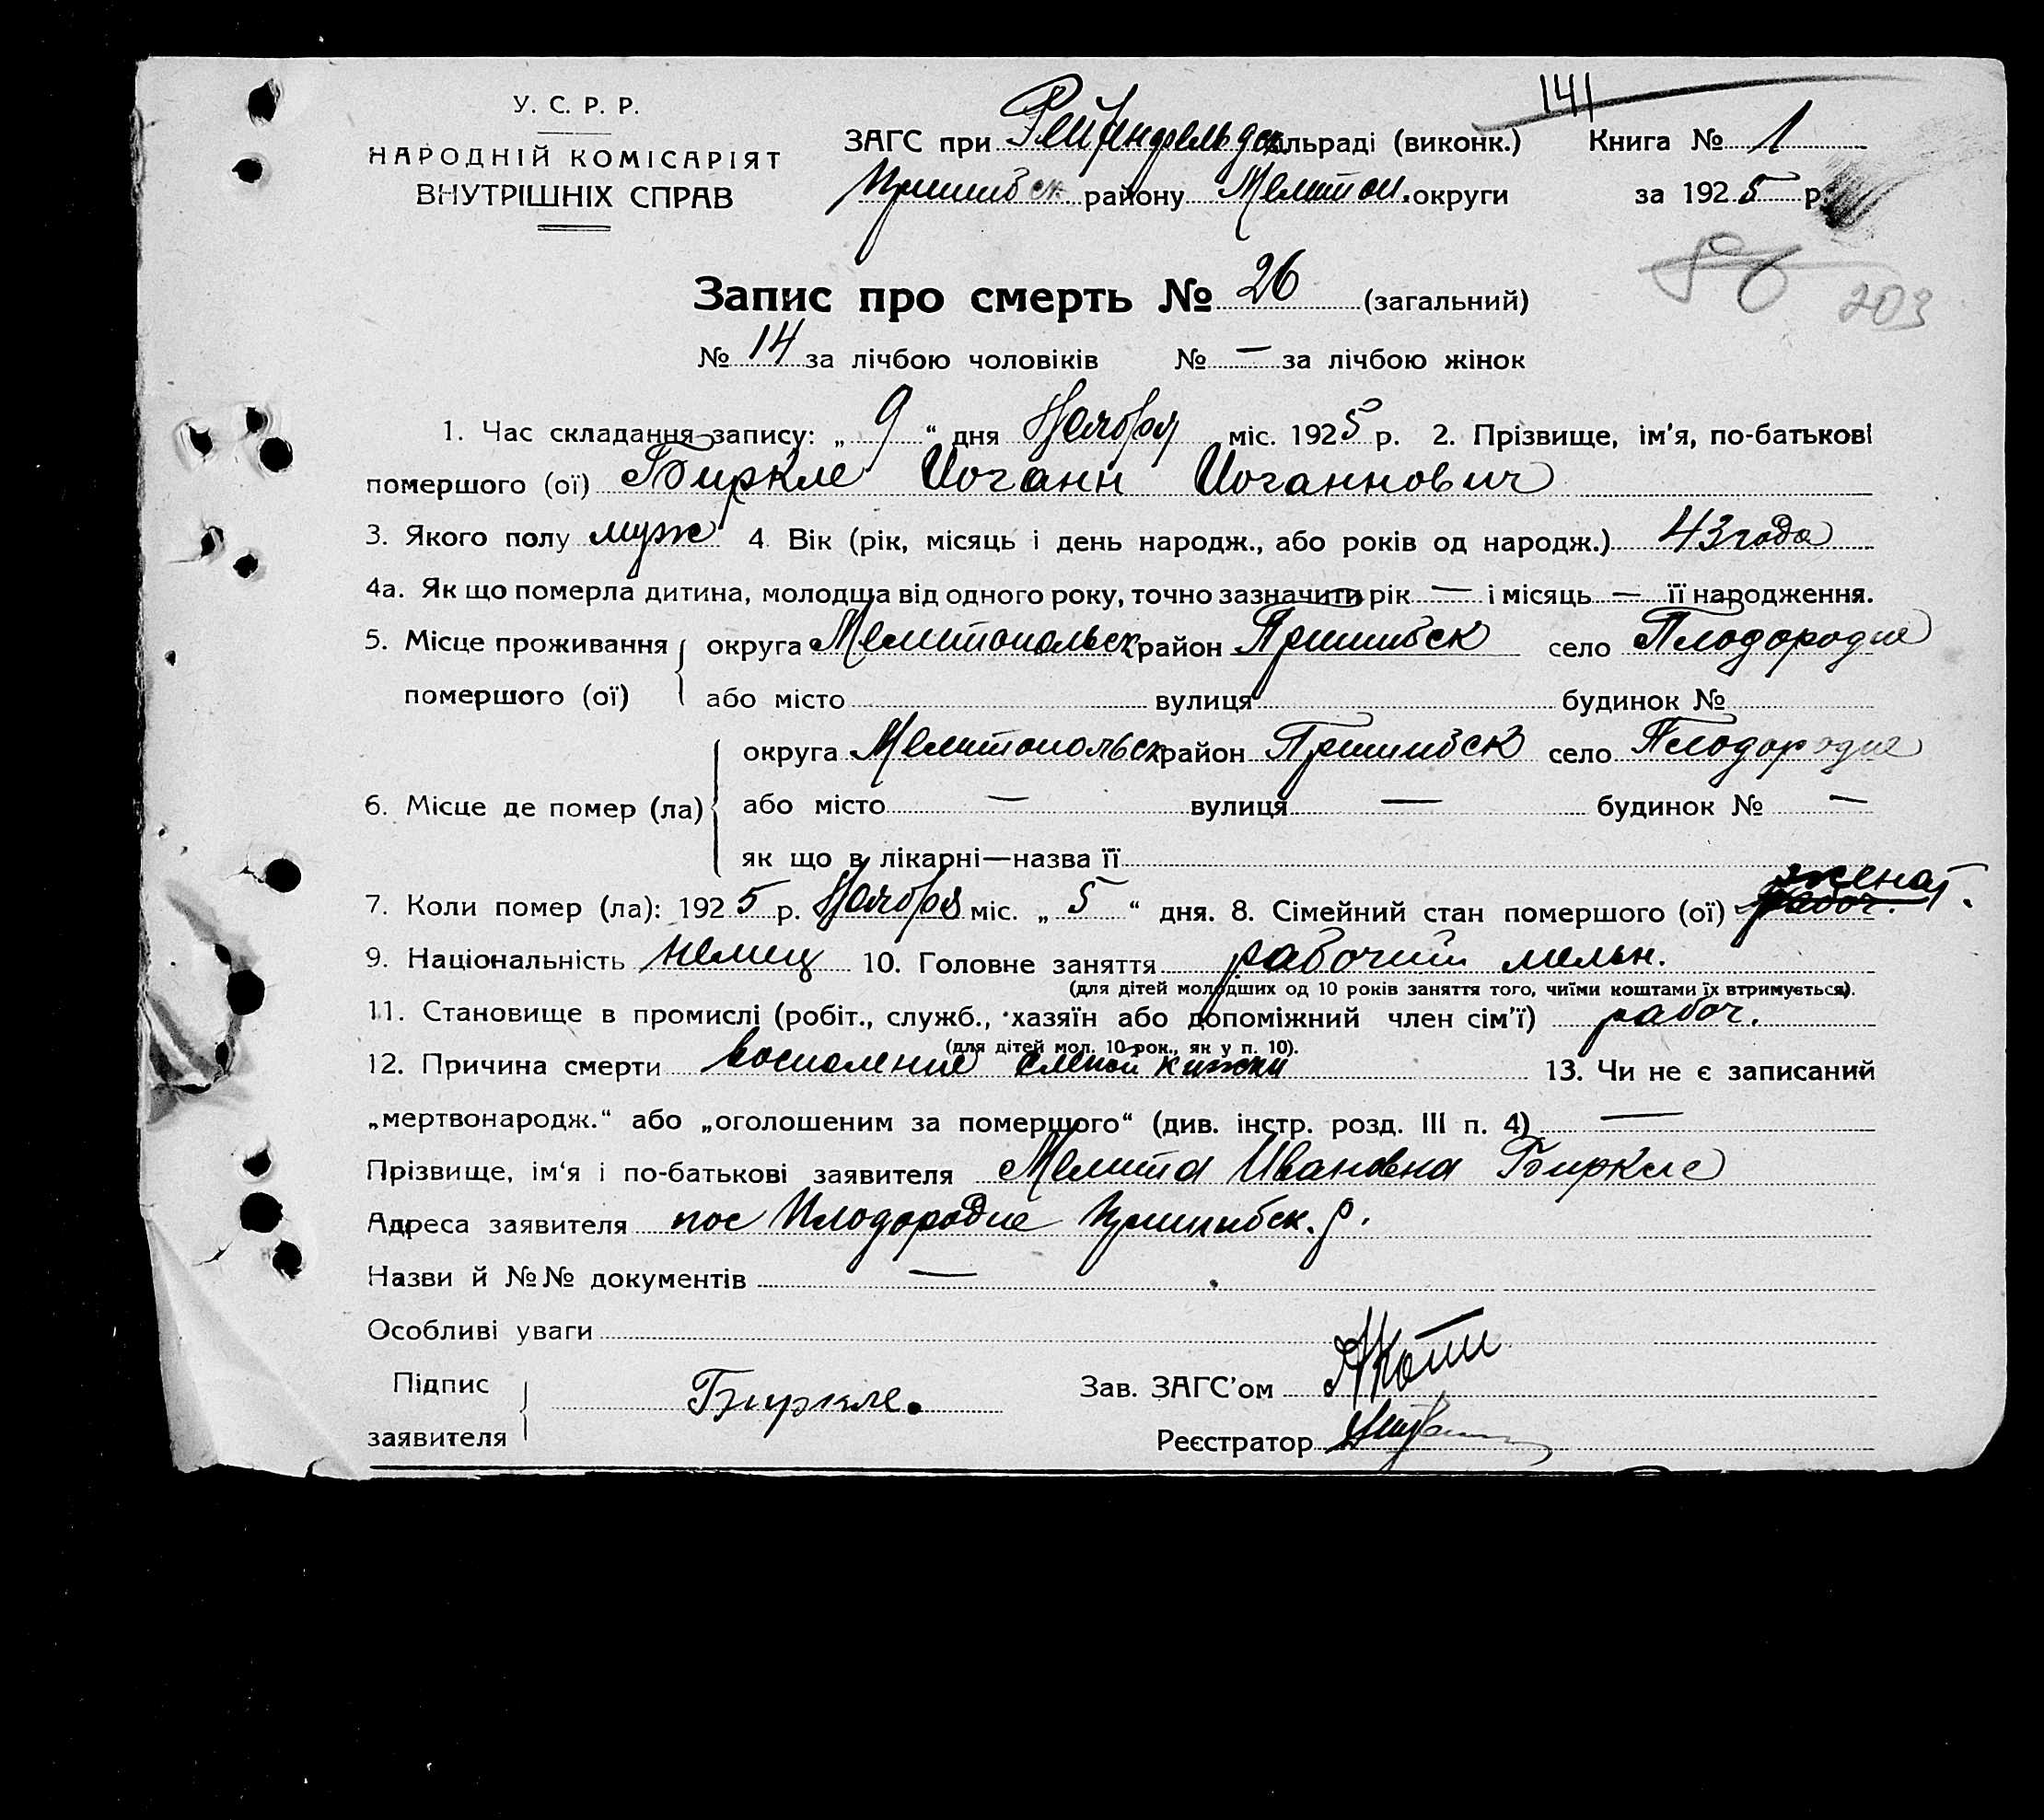 141
У. С. Р. Р.
НАРОДНІЙ КОМІСАРІЯТ
ВНУТРІШНІХ СПРАВ
ЗАГС при Рейхенфельдск сільраді (виконк.) Книга № 1
Пришибск. району Мелитоп. округи за 1925 р.
86 203
Запис про смерть № 26 (загальний)
№ 14 за лічбою чоловіків № — за лічбою жінок
1. Час складання запису: „ 9 “ дня Ноября міс. 1925 р. 2. Прізвище, ім'я, по-батькові
помершого (ої) Биркле Иоганн Иоганнович
3. Якого полу муж 4. Вік (рік, місяць і день народж., або років од народж.) 43 года
4а. Як що померла дитина, молодша від одного року, точно зазначити рік — і місяць — її народження.
5. Місце проживання помершого (ої) округа Мелитопольск район Пришибск село Плодородие
або місто вулиця будинок №
6. Місце де помер (ла) округа Мелитопольск район Пришибск село Плодородие
або місто — вулиця — будинок № —
як що в лікарні—назва її
7. Коли помер (ла): 1925 р. Ноября міс. „ 5 “ дня. 8. Сімейний стан помершого (ої) рабоч. женат.
9. Національність немец 10. Головне заняття рабочий мельн.
(для дітей молодших од 10 років заняття того, чиїми коштами їх втримується).
11. Становище в промислі (робіт., служб., хазяїн або допоміжний член сім'ї) рабоч.
(для дітей мол. 10 рок., як у п. 10).
12. Причина смерти воспаление слепой кишки 13. Чи не є записаний
„мертвонародж.“ або „оголошеним за померщого“ (див. інстр. розд. III п. 4) —
Прізвище, ім'я і по-батькові заявителя Мелита Ивановна Биркле
Адреса заявителя пос Плодородие Пришибск. р.
Назви й №№ документів —
Особливі уваги
Підпис заявителя Биркле.
Зав. ЗАГС'ом
Реєстратор